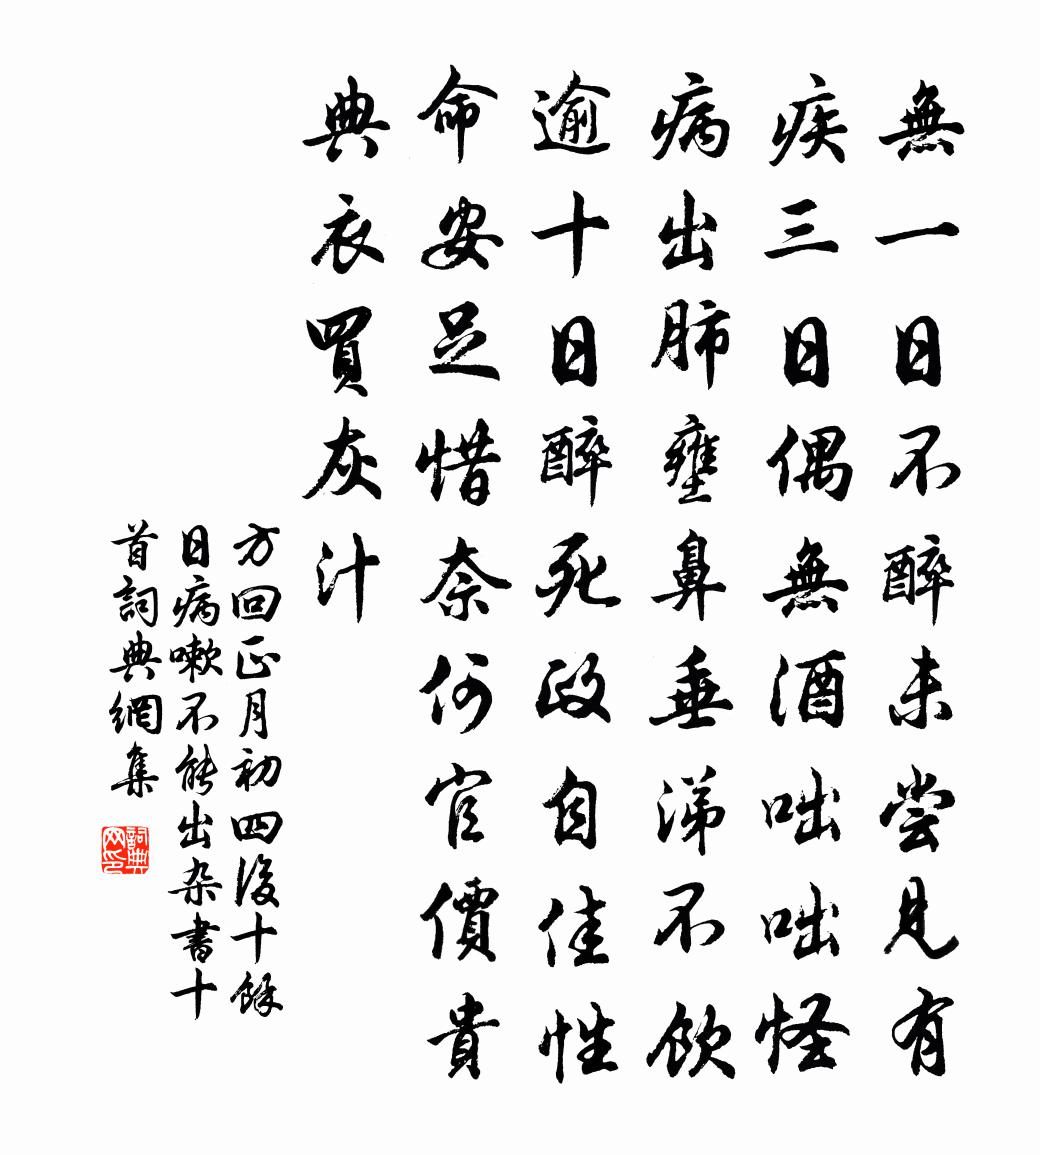 無一日不醉未尝見有
疾三日偶無酒咄咄怪
病出肺壅鼻垂涕不飲
逾十日醉死政自佳性
命安足惜奈何官價貴
典衣買灰汁
方回正月初四後十餘
日病嗽不能出杂書十
首詞典網集
詞典网印